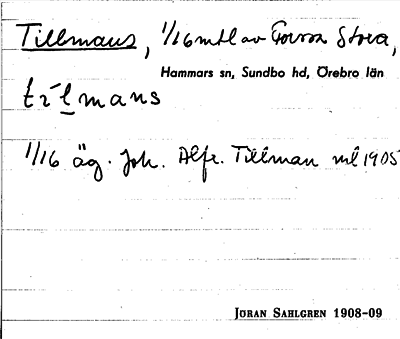 Tillmans, 1/16 mtl av Forssa Stora,
Hammars sn, Sundbo hd, Örebro län
mans
1/16 äg. Joh. Alfr. Tillman ml 1905
JÖRAN SAHLGREN 1908-09